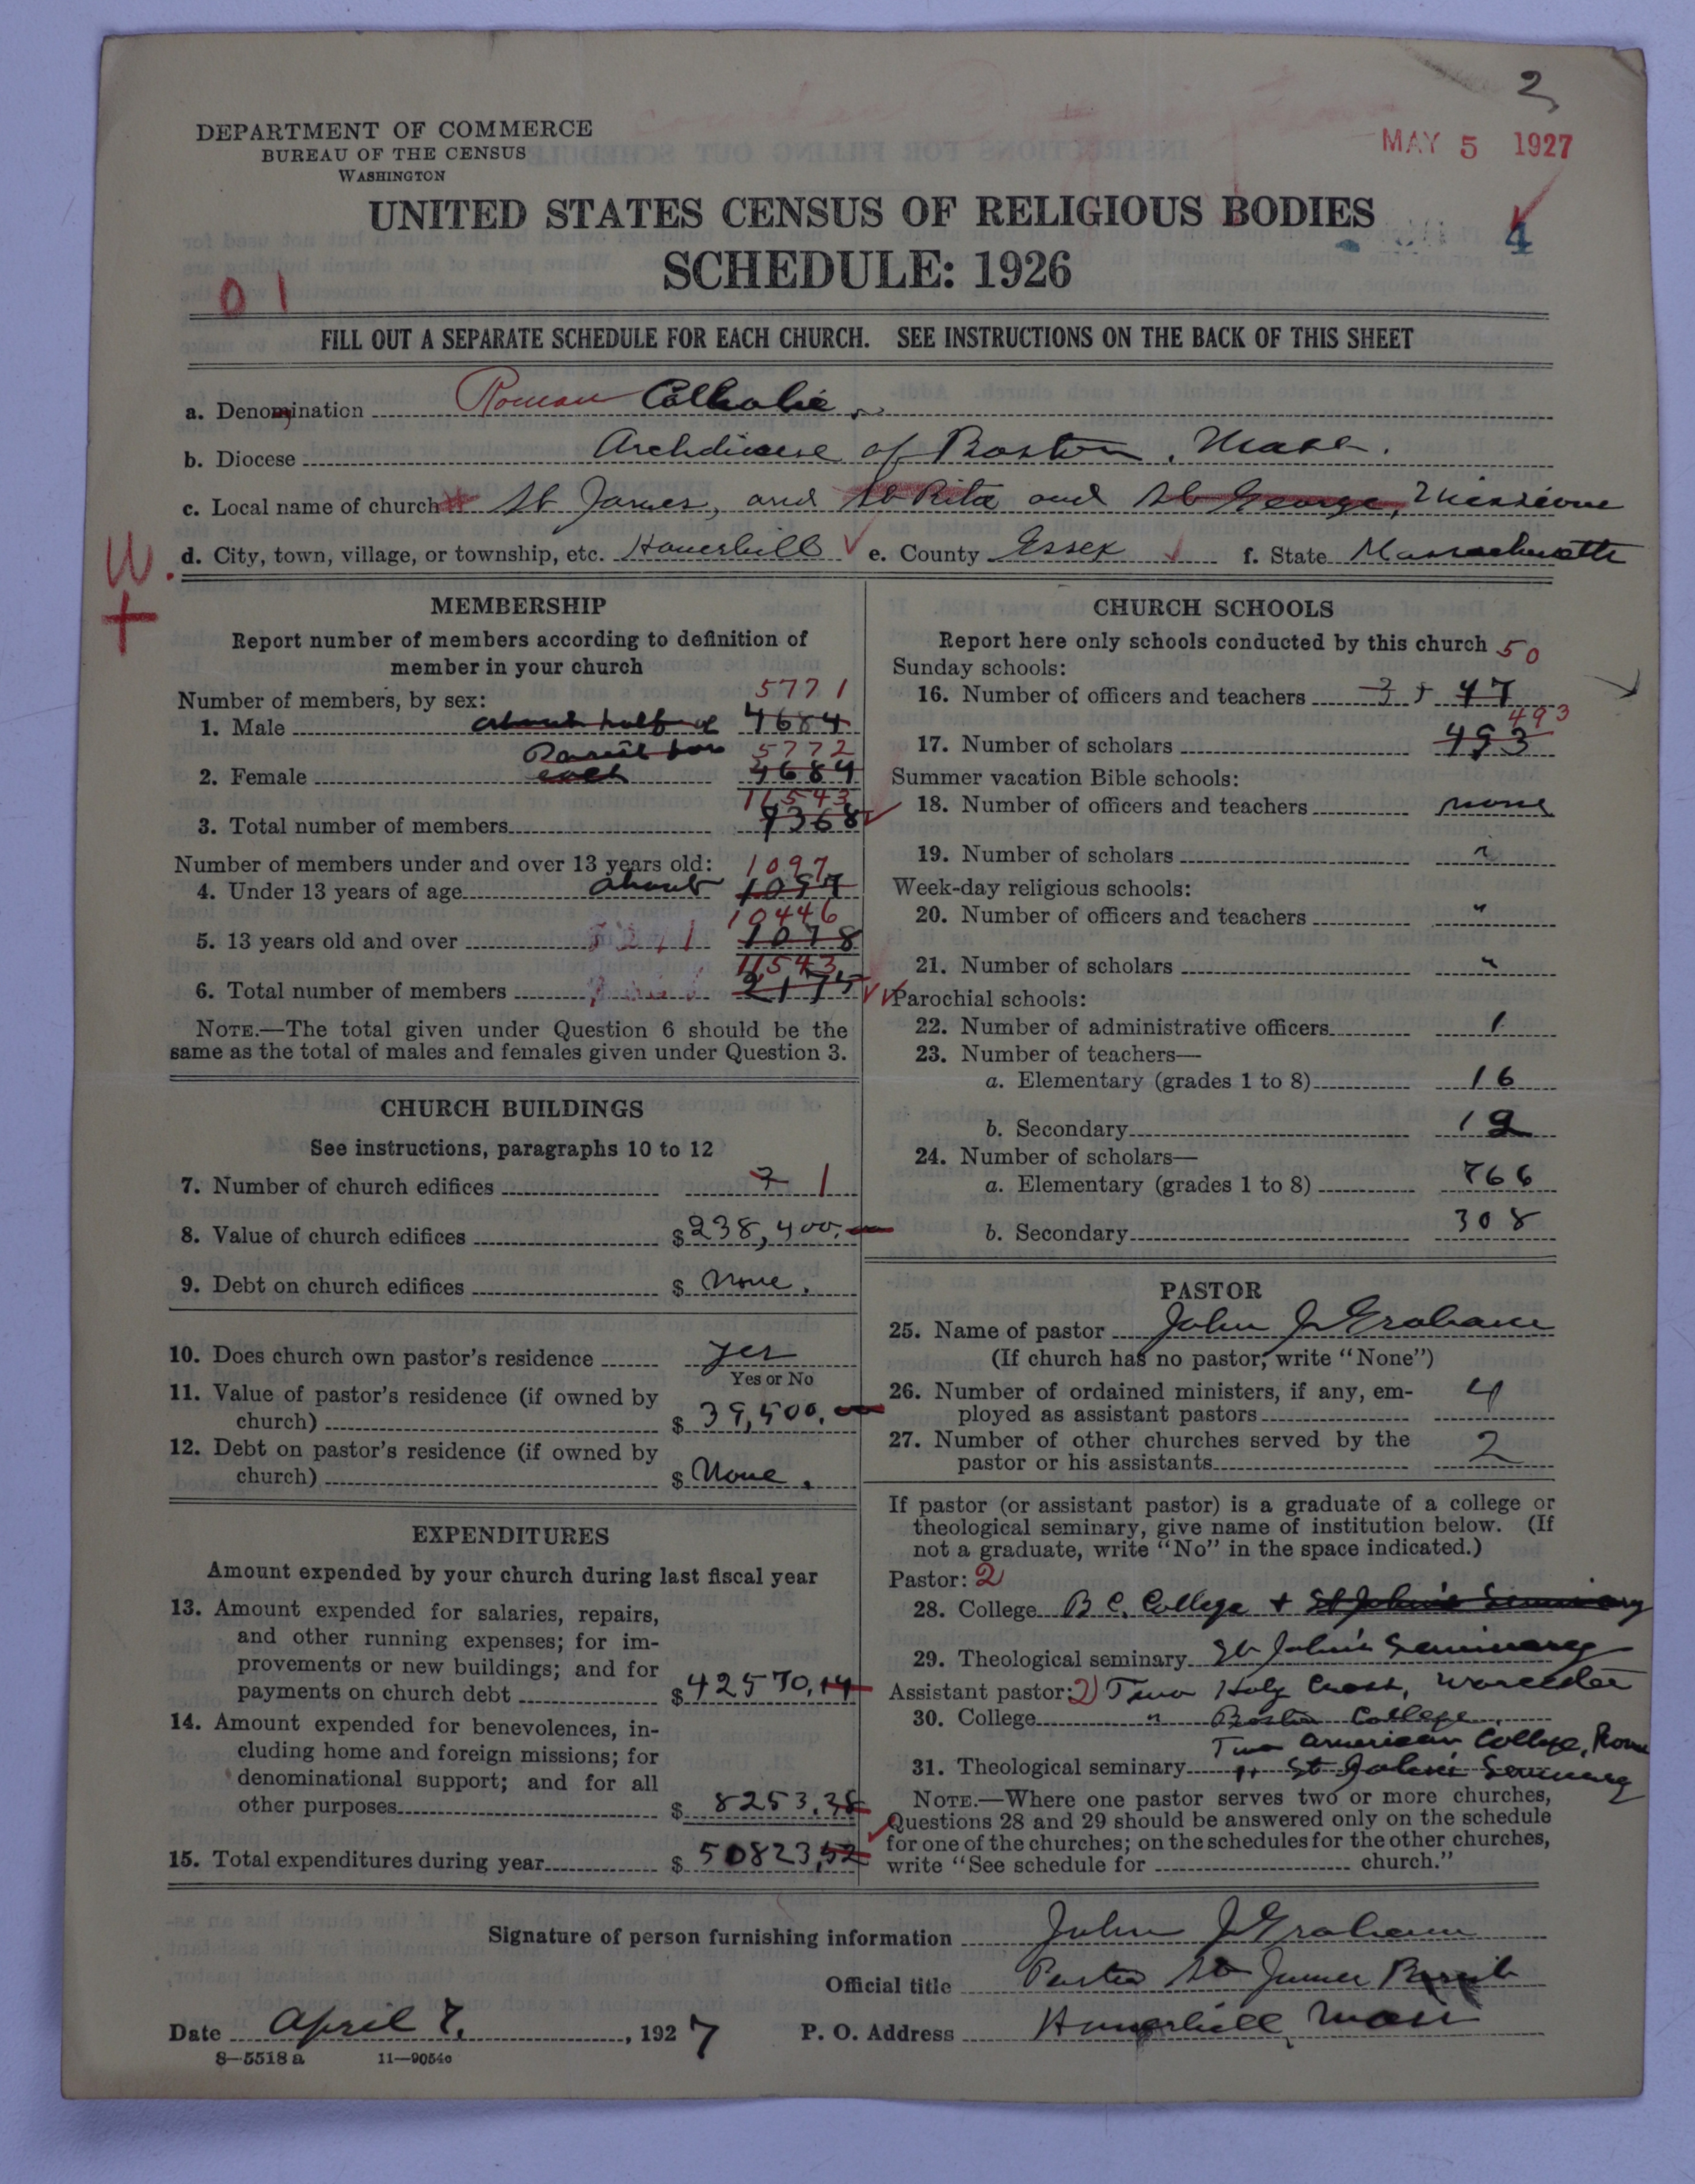 2
DEPARTMENT OF COMMERCE
BUREAU OF THE CENSUS
WASHINGTON
MAY 5 1927
UNITED STATES CENSUS OF RELIGIOUS BODIES
4
SCHEDULE: 1926
01
FILL OUT A SEPARATE SCHEDULE FOR EACH CHURCH. SEE INSTRUCTIONS ON THE BACK OF THIS SHEET
a. Denomination Roman Catholic
b. Diocese Archdiocese of Boston, Mass.
c. Local name of church St James, and St Rita and St George, Missions
d. City, town, village, or township, etc. Haverhill e. County Essex f. State Massachusetts
W.
+
MEMBERSHIP
Report number of members according to definition of
member in your church
Number of members, by sex:
5771
1. Male about half of 4684
Parish for 5772
2. Female each 4684
11543
3. Total number of members 9368
Number of members under and over 13 years old:
1097
4. Under 13 years of age about 1097
10446
5. 13 years old and over 1078
11543
6. Total number of members 2175
NOTE.—The total given under Question 6 should be the
same as the total of males and females given under Question 3.
CHURCH BUILDINGS
See instructions, paragraphs 10 to 12
7. Number of church edifices 1
8. Value of church edifices $238,400.
9. Debt on church edifices $ None.
10. Does church own pastor's residence yes
Yes or No
11. Value of pastor's residence (if owned by
church) $ 39,500.
12. Debt on pastor's residence (if owned by
church) $ None.
EXPENDITURES
Amount expended by your church during last fiscal year
13. Amount expended for salaries, repairs,
and other running expenses; for im-
provements or new buildings; and for
payments on church debt $42570,14
14. Amount expended for benevolences, in-
cluding home and foreign missions; for
denominational support; and for all
other purposes $ 8253.38
15. Total expenditures during year $ 50823,52
CHURCH SCHOOLS
Report here only schools conducted by this church
50
Sunday schools:
16. Number of officers and teachers 3 + 47
493
17. Number of scholars 493
Summer vacation Bible schools:
18. Number of officers and teachers none
19. Number of scholars "
Week-day religious schools:
20. Number of officers and teachers "
21. Number of scholars "
Parochial schools:
22. Number of administrative officers 1
23. Number of teachers—
a. Elementary (grades 1 to 8) 16
b. Secondary 12
24. Number of scholars—
a. Elementary (grades 1 to 8) 766
b. Secondary 308
PASTOR
25. Name of pastor John J Graham
(If church has no pastor, write "None")
26. Number of ordained ministers, if any, em-
ployed as assistant pastors 4
27. Number of other churches served by the
pastor or his assistants 2
If pastor (or assistant pastor) is a graduate of a college or
theological seminary, give name of institution below. (If
not a graduate, write "No" in the space indicated.)
Pastor: 2
28. College B C. College + St John's Seminary
29. Theological seminary St John's Seminary
Assistant pastor: 2 Two Holy Cross, Worcester
30. College " Boston College
Two American College, Rome
31. Theological seminary " St John's Seminary
NOTE.—Where one pastor serves two or more churches,
Questions 28 and 29 should be answered only on the schedule
for one of the churches; on the schedules for the other churches,
write "See schedule for church."
Signature of person furnishing information John J Graham
Official title Pastor St James Parish
Date April 7, 1927 P. O. Address Haverhill, Mass
8—5518 a 11—9054c